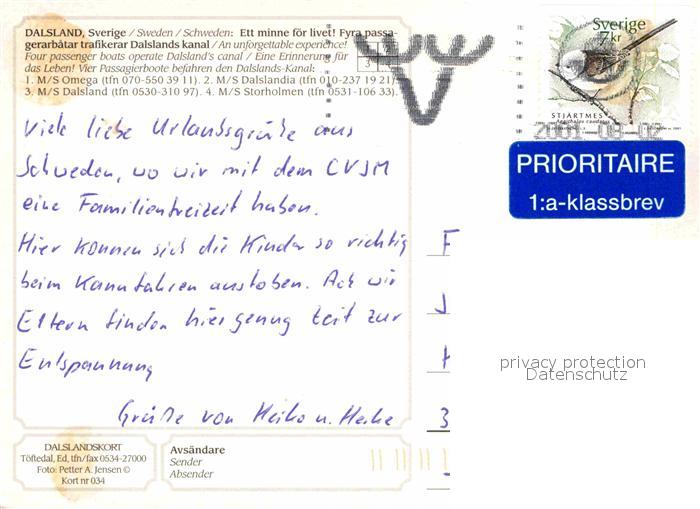 DALSLAND, Sverige / Sweden / Schweden: Ett minne för livet! Fyra passa-
gerarbåtar trafikerar Dalslands kanal / An unforgettable experience!
Four passenger boats operate Dalsland's canal / Eine Erinnerung für
das Leben! Vier Passagierboote befahren den Dalslands-Kanal:
1. M/S Omega (tfn 070-550 39 11). 2. M/S Dalslandia (tfn 010-237 19 21).
3. M/S Dalsland (tfn 0530-310 97). 4. M/S Storholmen (tfn 0531-106 33).
Viele liebe Urlaubsgrüße aus
Schweden, wo wir mit dem CVJM
eine Familienfreizeit haben.
Hier können sich die Kinder so richtig
beim Kanufahren austoben. Ach wir
Eltern finden hier genug Zeit zur
Entspannung
Grüße von Heiko u. Heike
Sverige
7kr
STJÄRTMES
Aegithalos caudatus
2001-08-02
PRIORITAIRE
1:a-klassbrev
F
J
H
3
privacy protection
Datenschutz
DALSLANDSKORT
Töftedal, Ed, tfn/fax 0534-27000
Foto: Petter A. Jensen ©
Kort nr 034
Avsändare
Sender
Absender